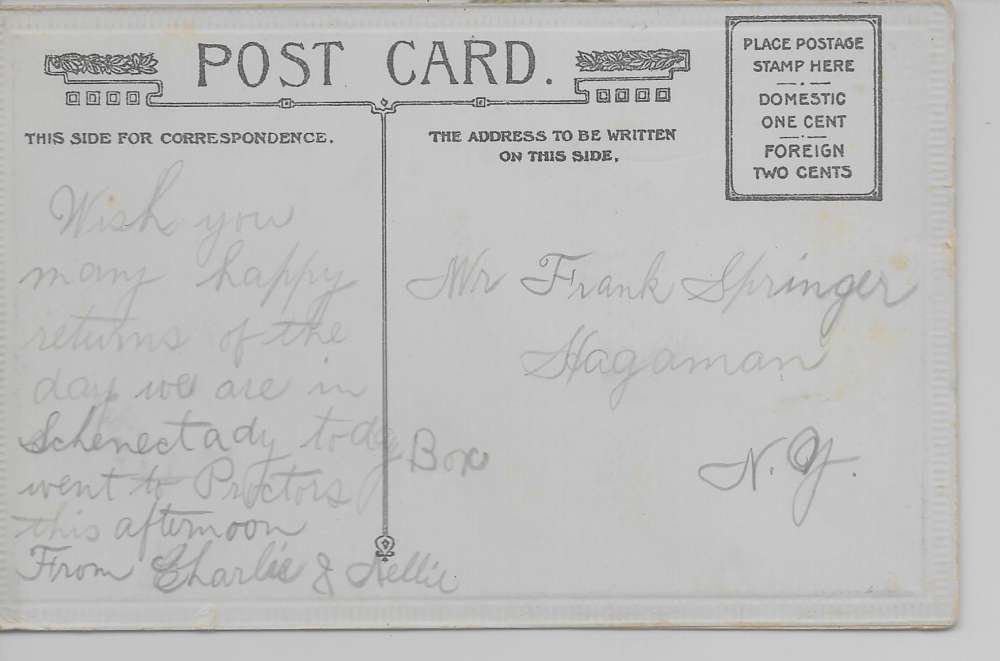 POST CARD.
THIS SIDE FOR CORRESPONDENCE.
THE ADDRESS TO BE WRITTEN
ON THIS SIDE.
PLACE POSTAGE
STAMP HERE
DOMESTIC
ONE CENT
FOREIGN
TWO CENTS
Wish you
many happy
returns of the
day we are in
Schenectady today
went to Proctors
this afternoon
From Charlie & Nellie
Mr Frank Springer
Hagaman
Box
N.Y.